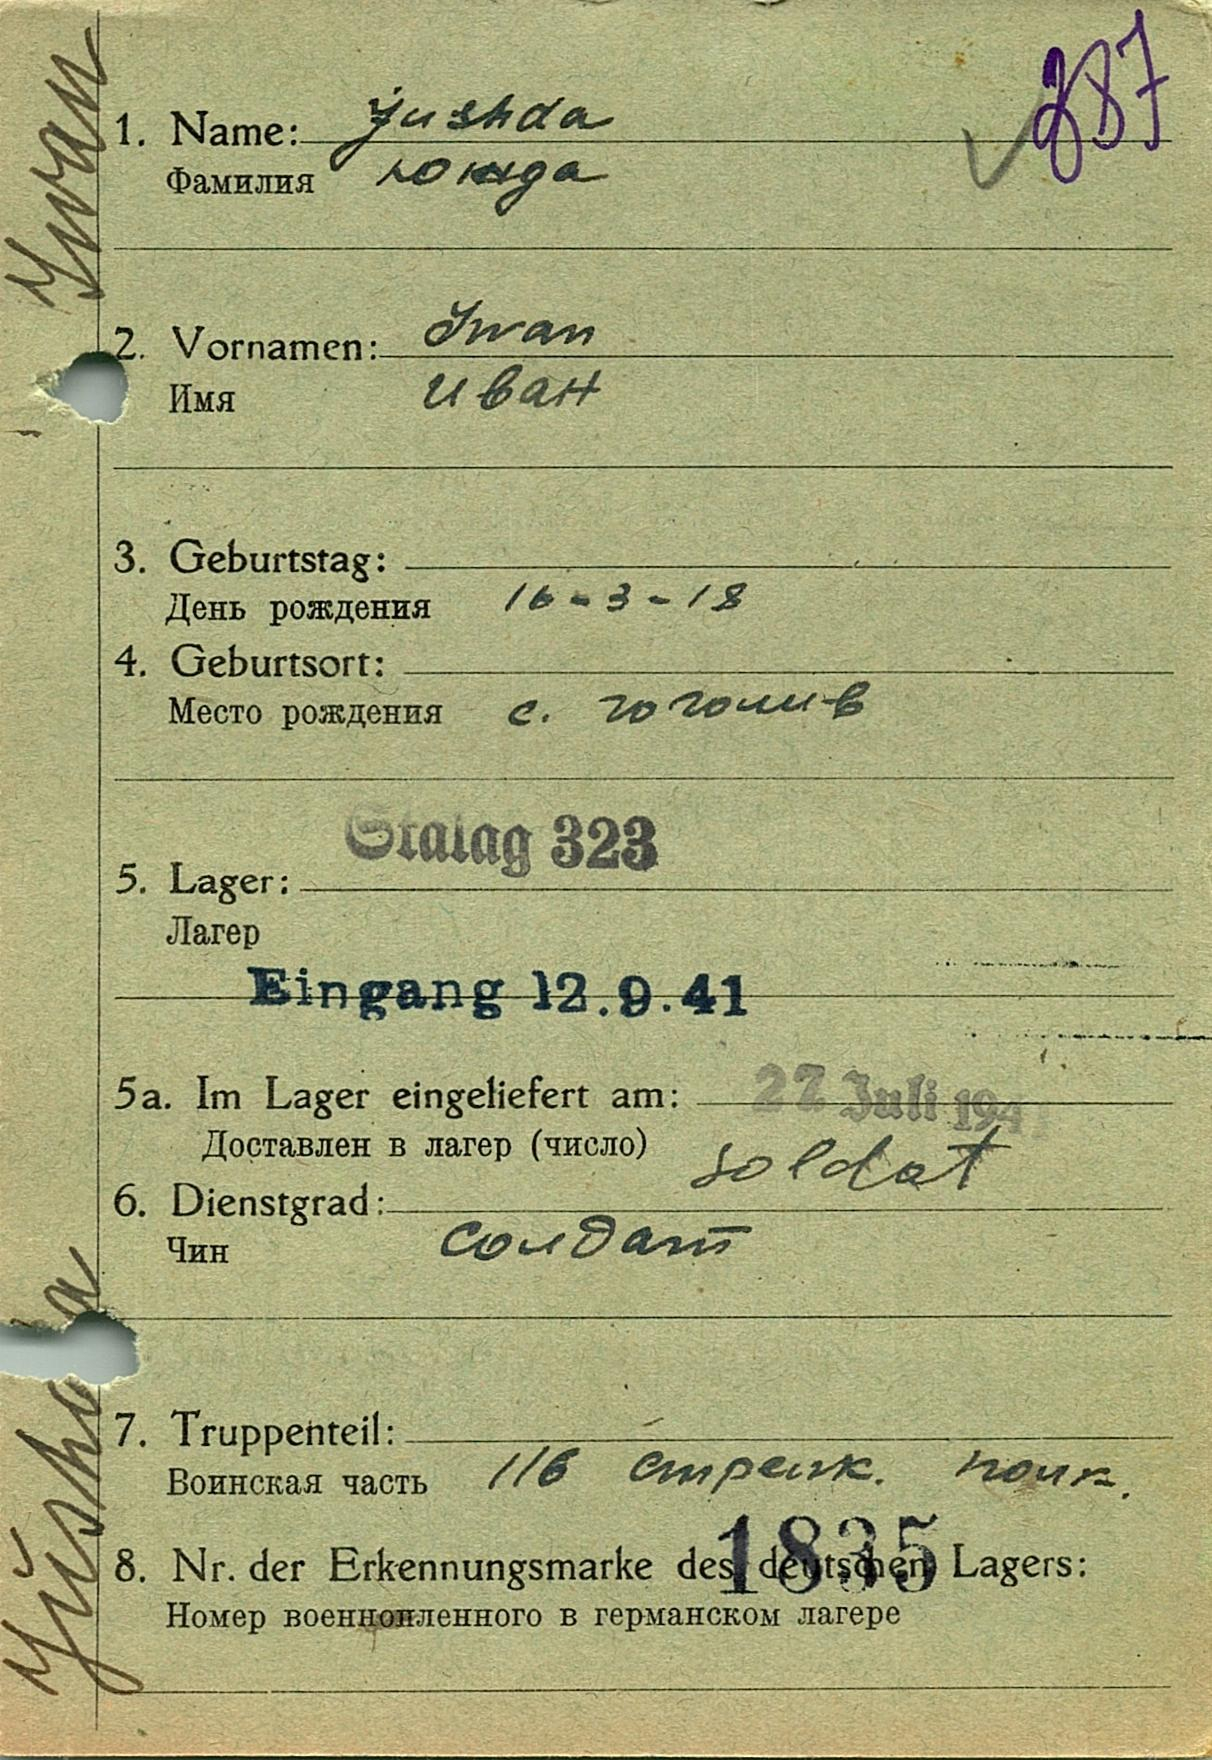 287
1. Name: Jushda
Фамилия Южда
2. Vornamen: Iwan
Имя Иван
3. Geburtstag:
День рождения 16-3-18
4. Geburtsort:
Место рождения с. гоголив
Stalag 323
5. Lager:
Лагер
Eingang 12.9.41
5a. Im Lager eingeliefert am: 22 Juli 194
Доставлен в лагер (число)
6. Dienstgrad: soldat
Чин солдат
7. Truppenteil:
Воинская часть 116 стрелк. полк.
1835
8. Nr. der Erkennungsmarke des deutschen Lagers:
Номер военнопленного в германском лагере
Jushda Iwan